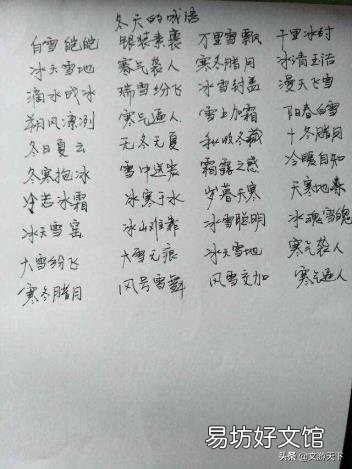 冬天的成语
白雪皑皑 银装素裹 万里雪飘 千里冰封
冰天雪地 寒气袭人 寒冬腊月 冰清玉洁
滴水成冰 瑞雪纷飞 冰雪封盖 漫天飞雪
朔风凛冽 寒气逼人 雪上加霜 阳春白雪
冬日夏云 无冬无夏 秋收冬藏 十冬腊月
冬寒抱冰 雪中送炭 霜露之感 冷暖自知
冷若冰霜 冰寒于水 岁暮天寒 天寒地冻
冰天雪窖 冰山难靠 冰雪聪明 冰魂雪魄
大雪纷飞 大雪无痕 冰天雪地 寒气袭人
寒冬腊月 风号雪舞 风雪交加 寒气逼人
易坊好文馆
头条@文游天下